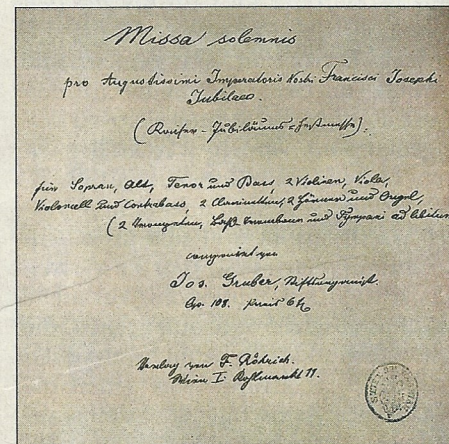 Missa solemnis
pro Augustissimi Imperatoris Nostri Francisci Josephi
Jubilaeo.
(Kaiser-Jubiläums-Festmesse).
für Sopran, Alt, Tenor und Bass, 2 Violinen, Viola,
Violoncell und Contrabass, 2 Clarinetten, 2 Hörner und Orgel,
(2 Trompeten, Bassposaune und Tympani ad libitum
componirt von
Jos. Gruber, Stiftsorganist.
Op. 108. Preis 6 K
Verlag von F. Röhrich.
Wien I. Kohlmarkt 11.